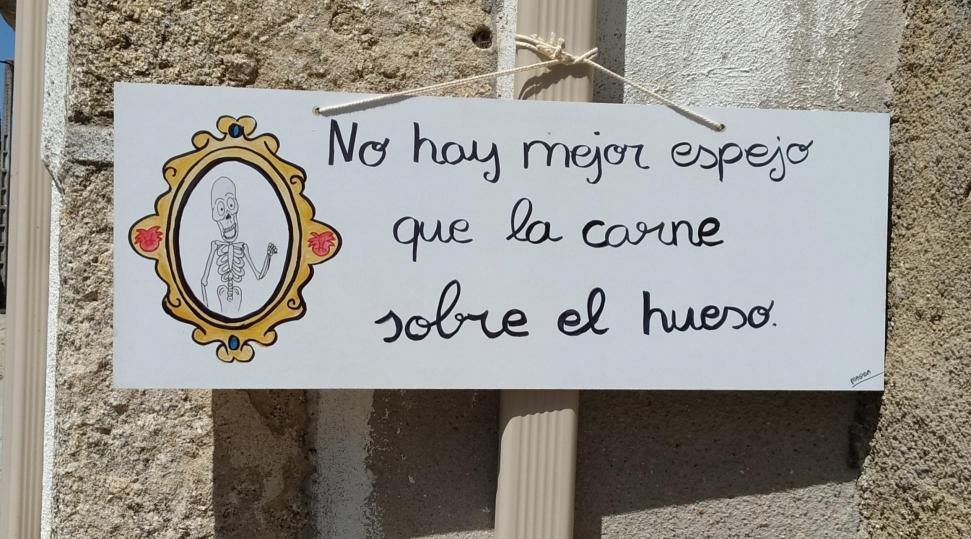 No hay mejor espejo
que la carne
sobre el hueso.